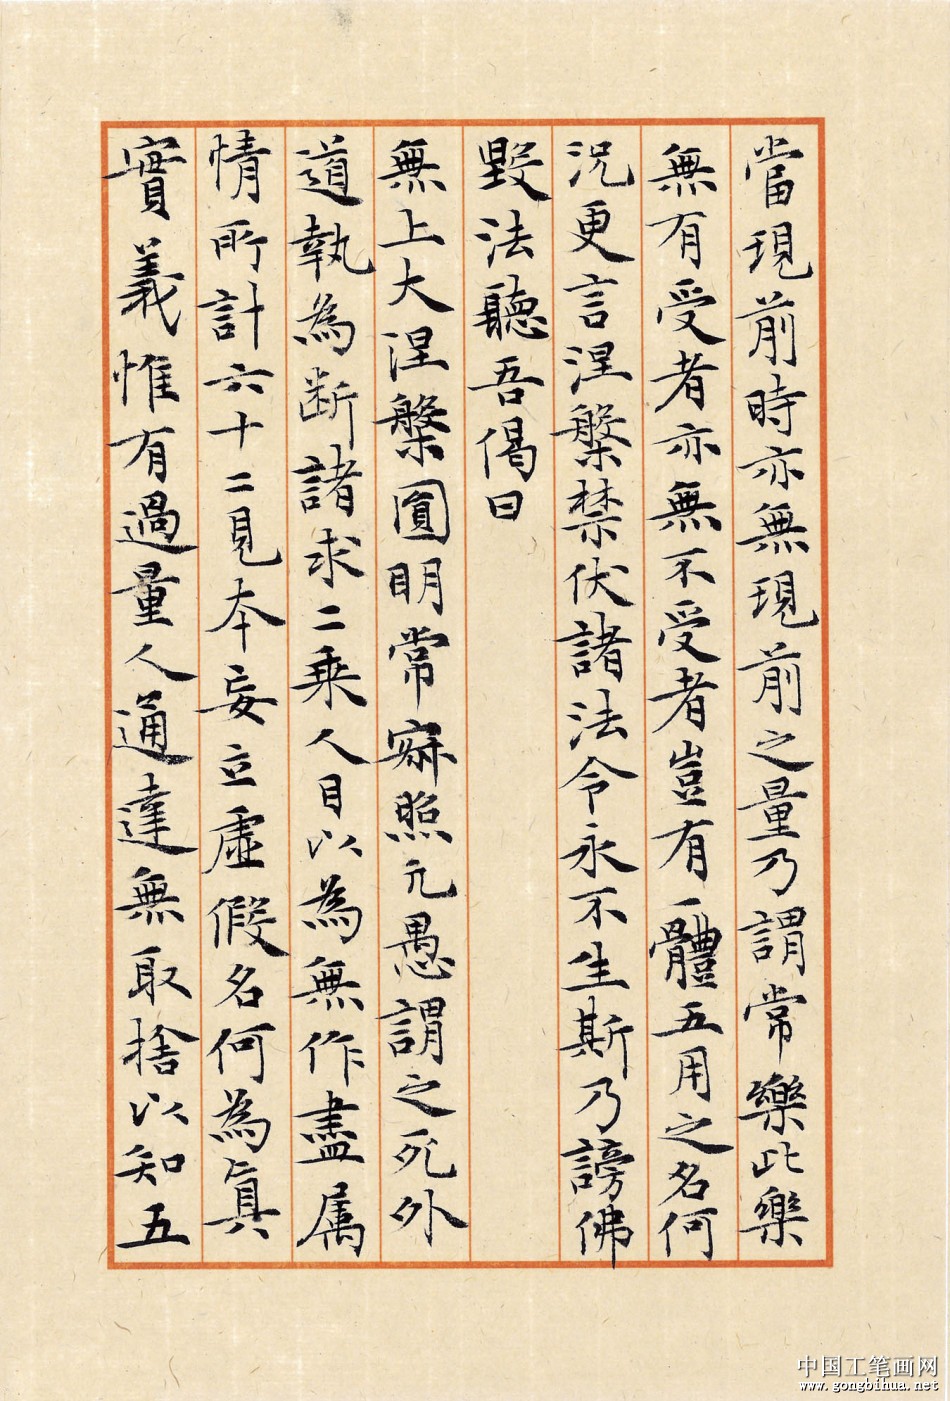 當現前時亦無現前之量乃謂常樂此樂
無有受者亦無不受者豈有一體五用之名何
況更言涅槃禁伏諸法令永不生斯乃謗佛
毀法聽吾偈曰
無上大涅槃圓明常寂照凡愚謂之死外
道執為斷諸求二乘人目以為無作盡属
情所計六十二見本妄立虛假名何為真
實義惟有過量人通達無取捨以知五
中国工笔画网
www.gongbihua.net